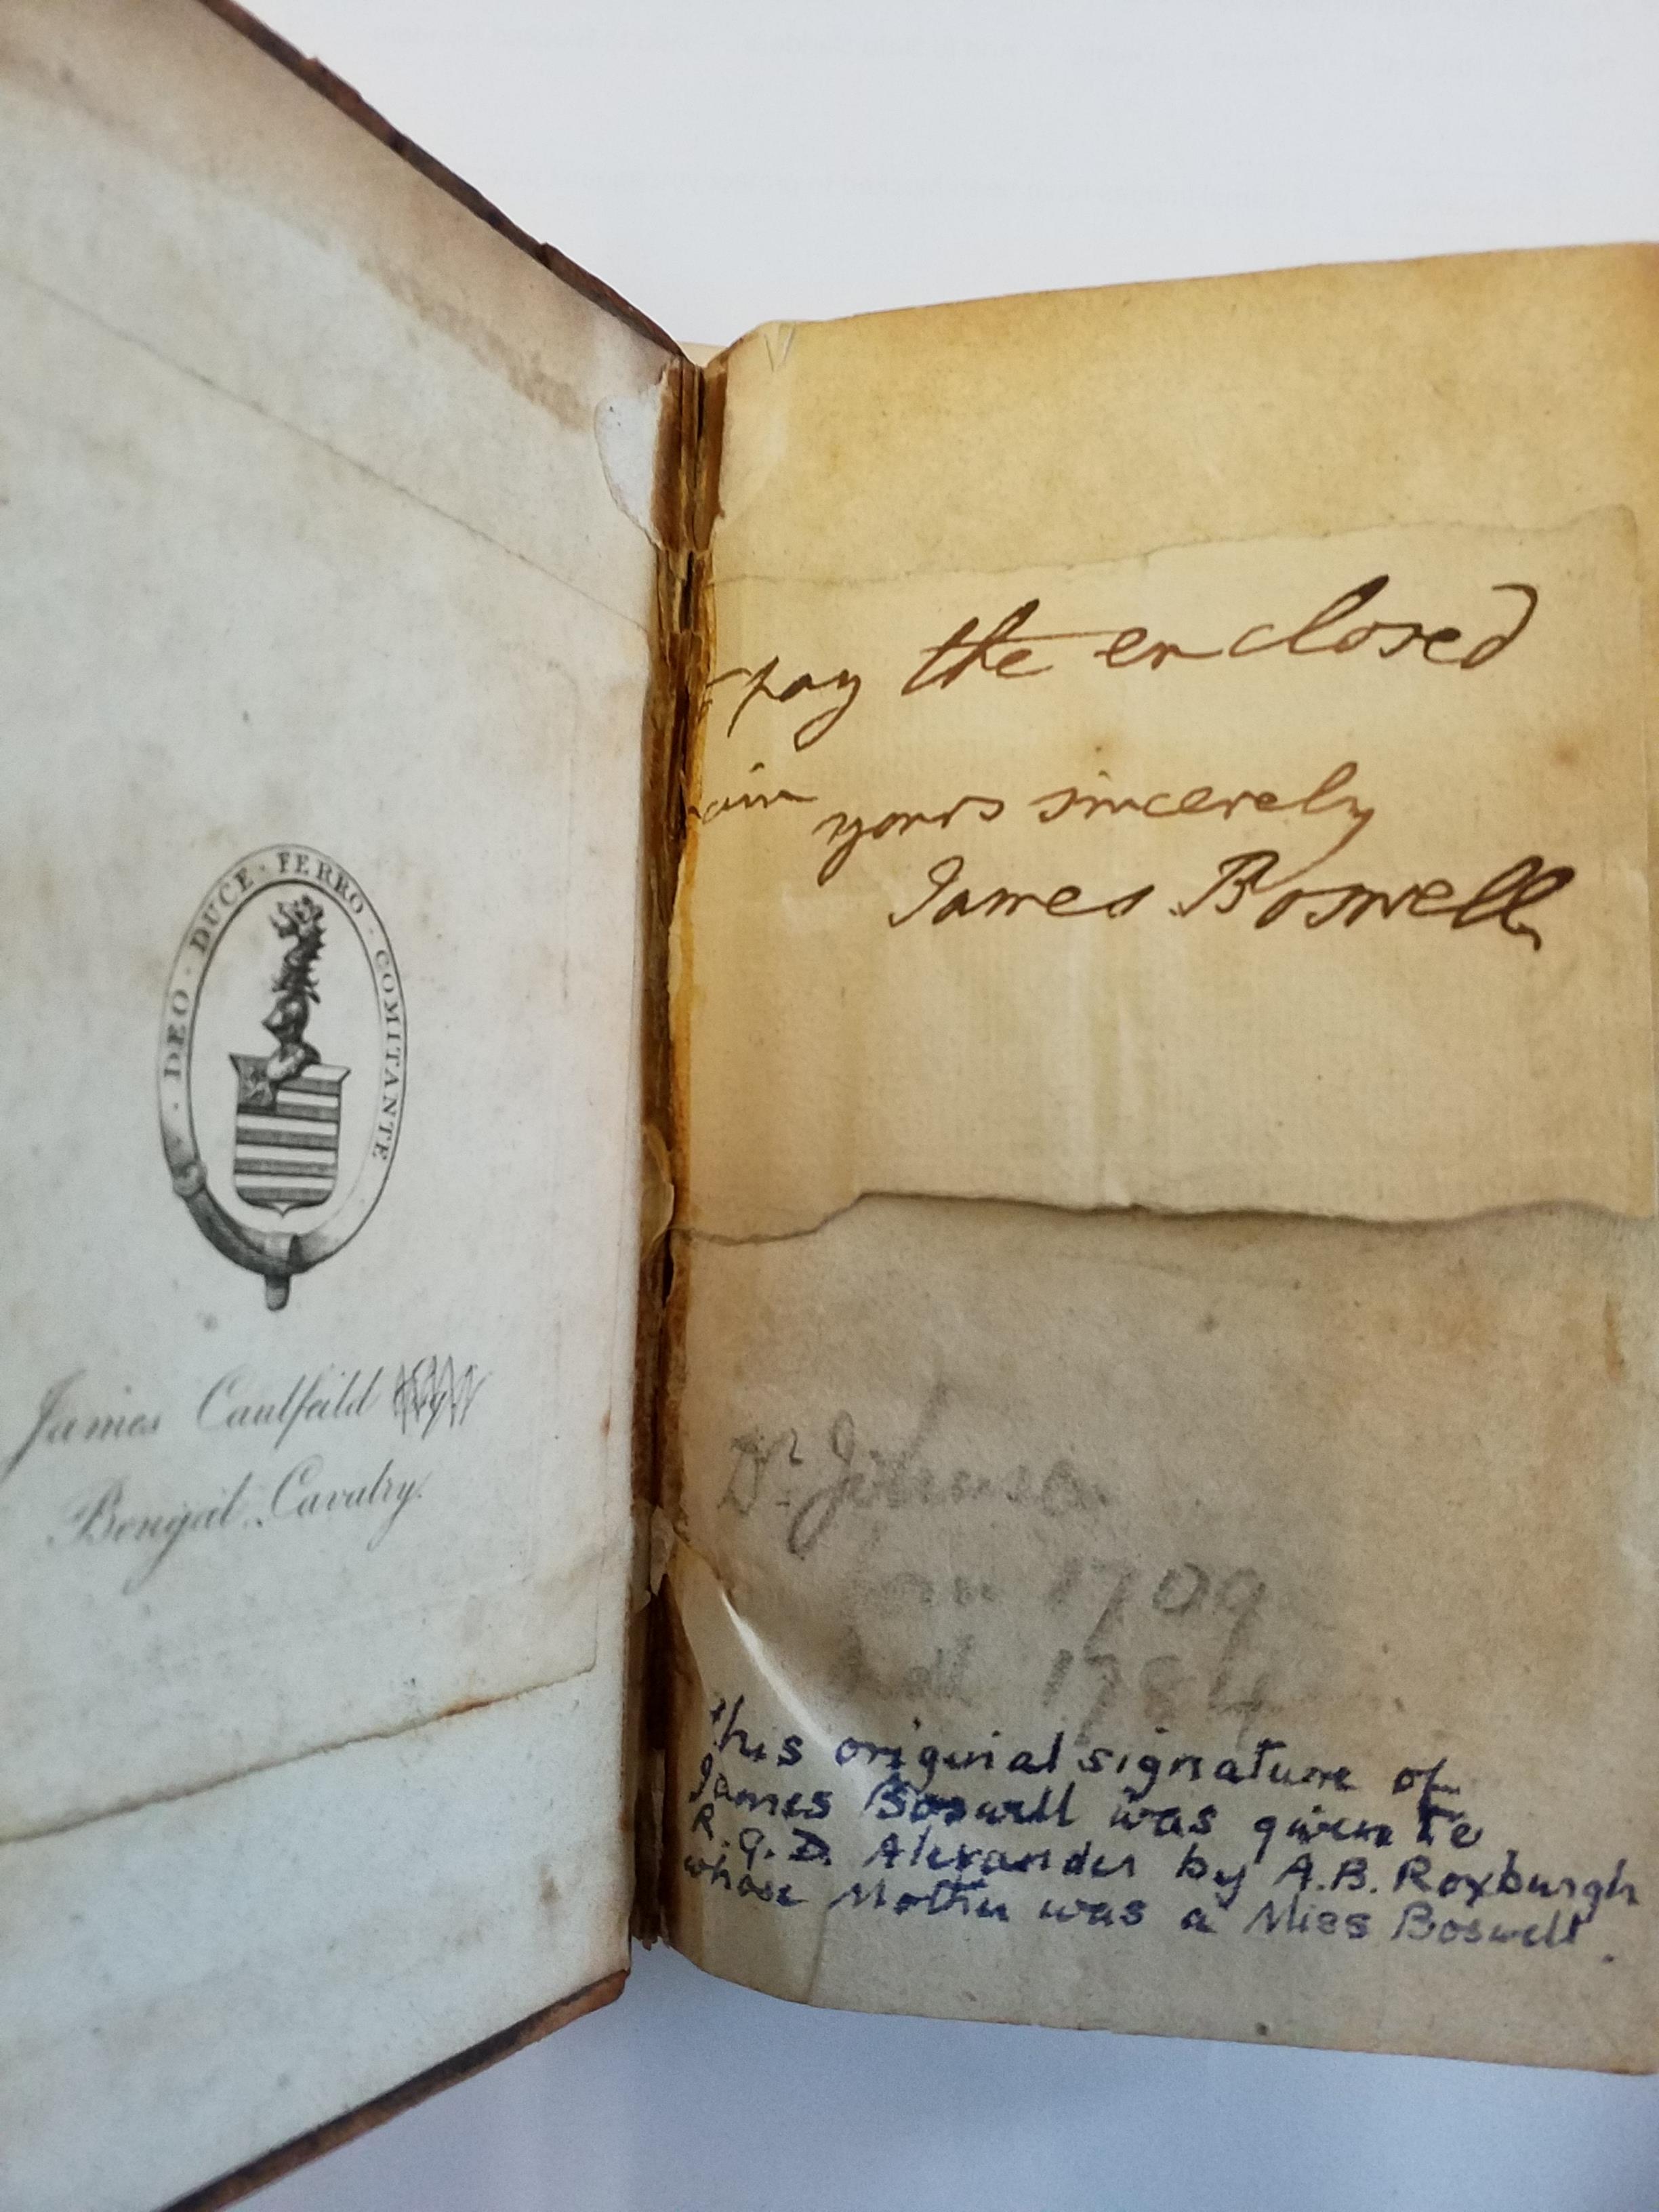 · DEO · DUCE · FERRO · COMITANTE ·
James Caulfeild
Bengal Cavalry.
pay the enclosed
am
yours sincerely
James Boswell
Dr. Johnson
1709
1784
this original signature of
James Boswell was given to
R. G. D. Alexander by A.B. Roxburgh
whose Mother was a Miss Boswell.